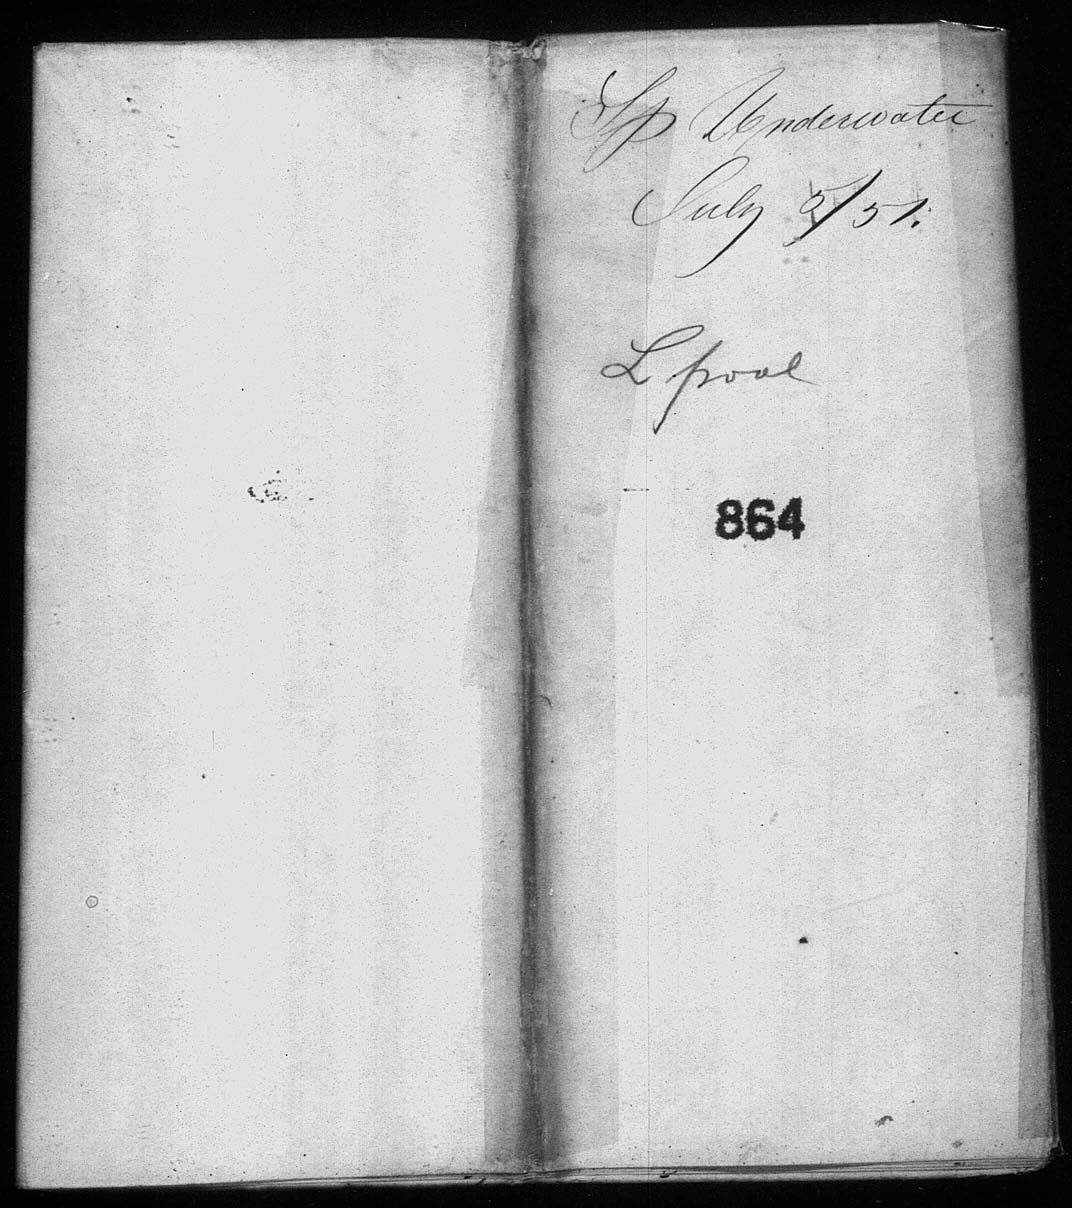 Sp Underwriter
July 5/51.
L pool
864